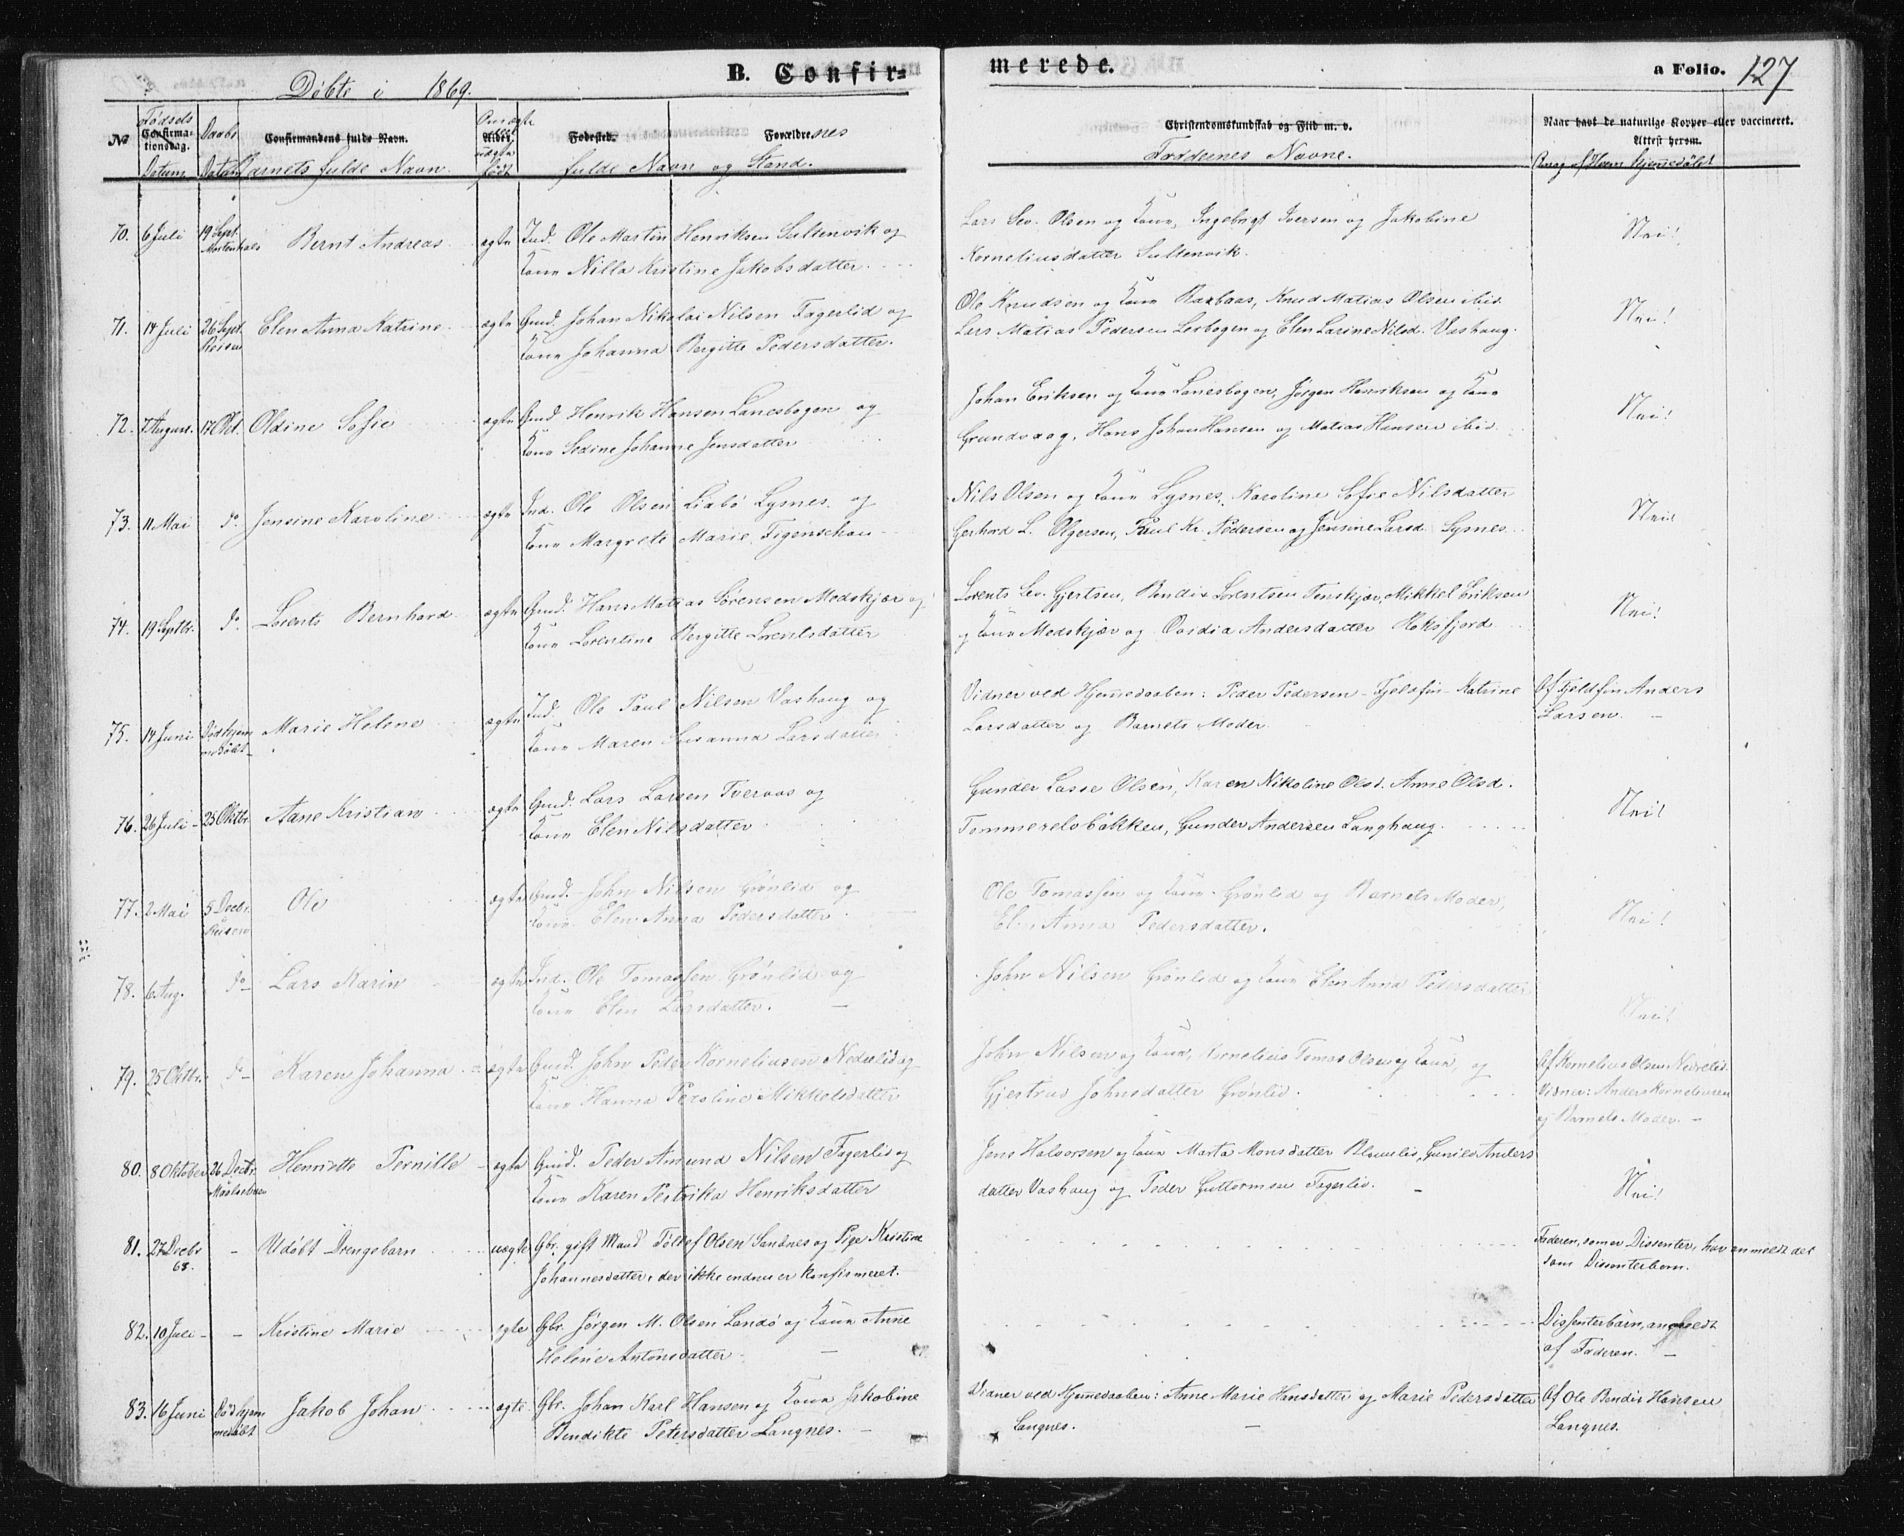 Døbte i 1869.
B. Confir-
merede.
a Folio. 127
No
Fødsels
Confirma-
tionsdag.
Datum
Daabs
Datum
Confirmandens fulde Navn.
Barnets fulde Navn
Om ægte
eller
Alder.
uægte
født
Fødested.
Forældrenes
fulde Navn og Stand.
Christendomskundskab og Flid m. v.
Faddernes Navne.
Naar havt de naturlige Kopper eller vaccineret.
Attest herom.
Besøg af Hvem hjemmedøbt
70. 6 Juli 19 Sept. Bernt Andreas ægte Ind. Ole Martin Henriksen Sultenvik og
Mortenhals
Kone Nilla Kristine Jakobsdatter.
Lars Sev. Olsen og Kone, Ingebrigt Iversen og Jakobine
Korneliusdatter Sultenvik.
Nei!
71. 14 Juli 26 Sept. Elen Anna Katrine ægte Gmd. Johan Nikolai Nilsen Fagerlid og
Reisen
Kone Johanna Bergitte Pedersdatter.
Ole Knudsen og Kone Barbaas, Knud Matias Olsen ibid.
Lars Matias Pedersen Lerbogen og Elen Larine Nilsd. Vashaug.
Nei!
72. 7 August. 17 Okt. Oldine Sofie ægte Gmd. Henrik Hansen Lanesbogen og
Kone Sedine Johanne Jensdatter
Johan Eriksen og Kone Lanesbogen, Jørgen Henriksen og Kone
Grundvaag, Hans Johan Hansen og Matias Hansen ibid.
Nei!
73. 11 Mai do. Jensine Karoline ægte Ind. Ole Olsen Liabø Lysnes og
Kone Margrete Marie Figenschau
Nils Olsen og Kone Lysnes, Karoline Sofie Nilsdatter
Gerhard L. Olgersen, Paul Kr. Pedersen og Jensine Larsd. Lysnes
Nei!
74. 19 Septbr. do. Lorents Bernhard ægte Gmd. Hans Matias Sørensen Medskjær og
Kone Lorentine Bergitte Lorentsdatter
Lorents Sev. Gjertsen, Bendix Lorentsen Finskjær, Mikkel Eriksen
og Kone Medskjær og Ovidia Andersdatter Roksfjord
Nei!
75. 14 Juni Død hjem- Marie Helene ægte Ind. Ole Paul Nilsen Vashaug og
medøbt
Kone Maren Susanna Larsdatter
Vidner ved Hjemmedaaben: Peder Pedersen - Fjeldfin - Katrine
Larsdatter og Barnets Moder
Af Fjeldfin Anders
Larsen.
76. 26 Juli 25 Oktbr. Aane Kristian ægte Gmd. Lars Larsen Tveraas og
Kone Elen Nilsdatter
Gunder Lasse Olsen, Karen Nikoline Olsd. Anne Olsd.
Tømmerelvbakken, Gunder Andersen Langhaug.
Nei!
77. 2 Mai 5 Decbr. Ole ægte Gmd. John Nilsen Grønlid og
Reisen
Kone Elen Anna Pedersdatter.
Ole Tomassen og Kone Grønlid og Barnets Moder,
Elen Anna Pedersdatter.
Nei!
78. 6 Aug. do Lars Marin ægte Ind. Ole Tomassen Grønlid og
Kone Elen Larsdatter.
John Nilsen Grønlid og Kone Elen Anna Pedersdatter
Nei!
79. 25 Oktbr. do Karen Johanna ægte Gmd. John Peder Korneliusen Nedrelid og
Kone Hanna Peroline Mikkelsdatter
John Nilsen og Kone, Kornelius Tomas Olsen og Kone, og
Gjertrud Johnsdatter Grønlid.
Af Kornelius Olsen Nedrelid.
Vidner: Anders Korneliusen
og Barnets Moder.
80. 8 Oktober 26 Decbr. Henriette Pernille ægte Gmd. Peder Amund Nilsen Fagerlid og
Kone Karen Petrika Henriksdatter
Jens Halvorsen og Kone Marta Monsdatter Blomlid, Gunild Anders
datter Vashaug og Peder Guttormsen Fagerlid.
Nei!
81. 27 Decbr - Udøbt Drengebarn uægte Gbr. gift Mand Tollef Olsen Sandnes og Pige Kristine
68.
Johannesdatter, der ikke endnu er konfirmeret.
Faderen, som er Dissenter, har anmeldt det
som Dissenterbarn.
82. 10 Juli - - Kristine Marie ægte Gbr. Jørgen M. Olsen Landø og Kone Anne
Helene Antonsdatter
Dissenterbarn, anmeldt
af Faderen.
83. 16 Juni Død hjem Jakob Johan ægte. Gbr. Johan Karl Hansen og Kone Jakobine
medøbt
Bendikte Petersdatter Langnes.
Vidner ved Hjemmedaaben: Anne Marie Hansdatter og Marie Pedersdatter
Langnes.
Af Ole Bendix Hansen
Langnes.